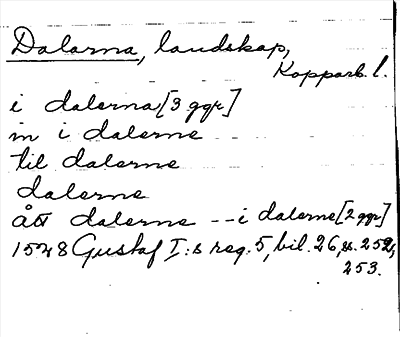 Dalarna, landskap,
Kopparb. l.
i dalerna [3 ggr]
in i dalerne
til dalerne
dalerne
åt dalerne -- i dalerne [2 ggr]
1528 Gustaf I:s reg. 5, bil. 26, ss. 252,
253.